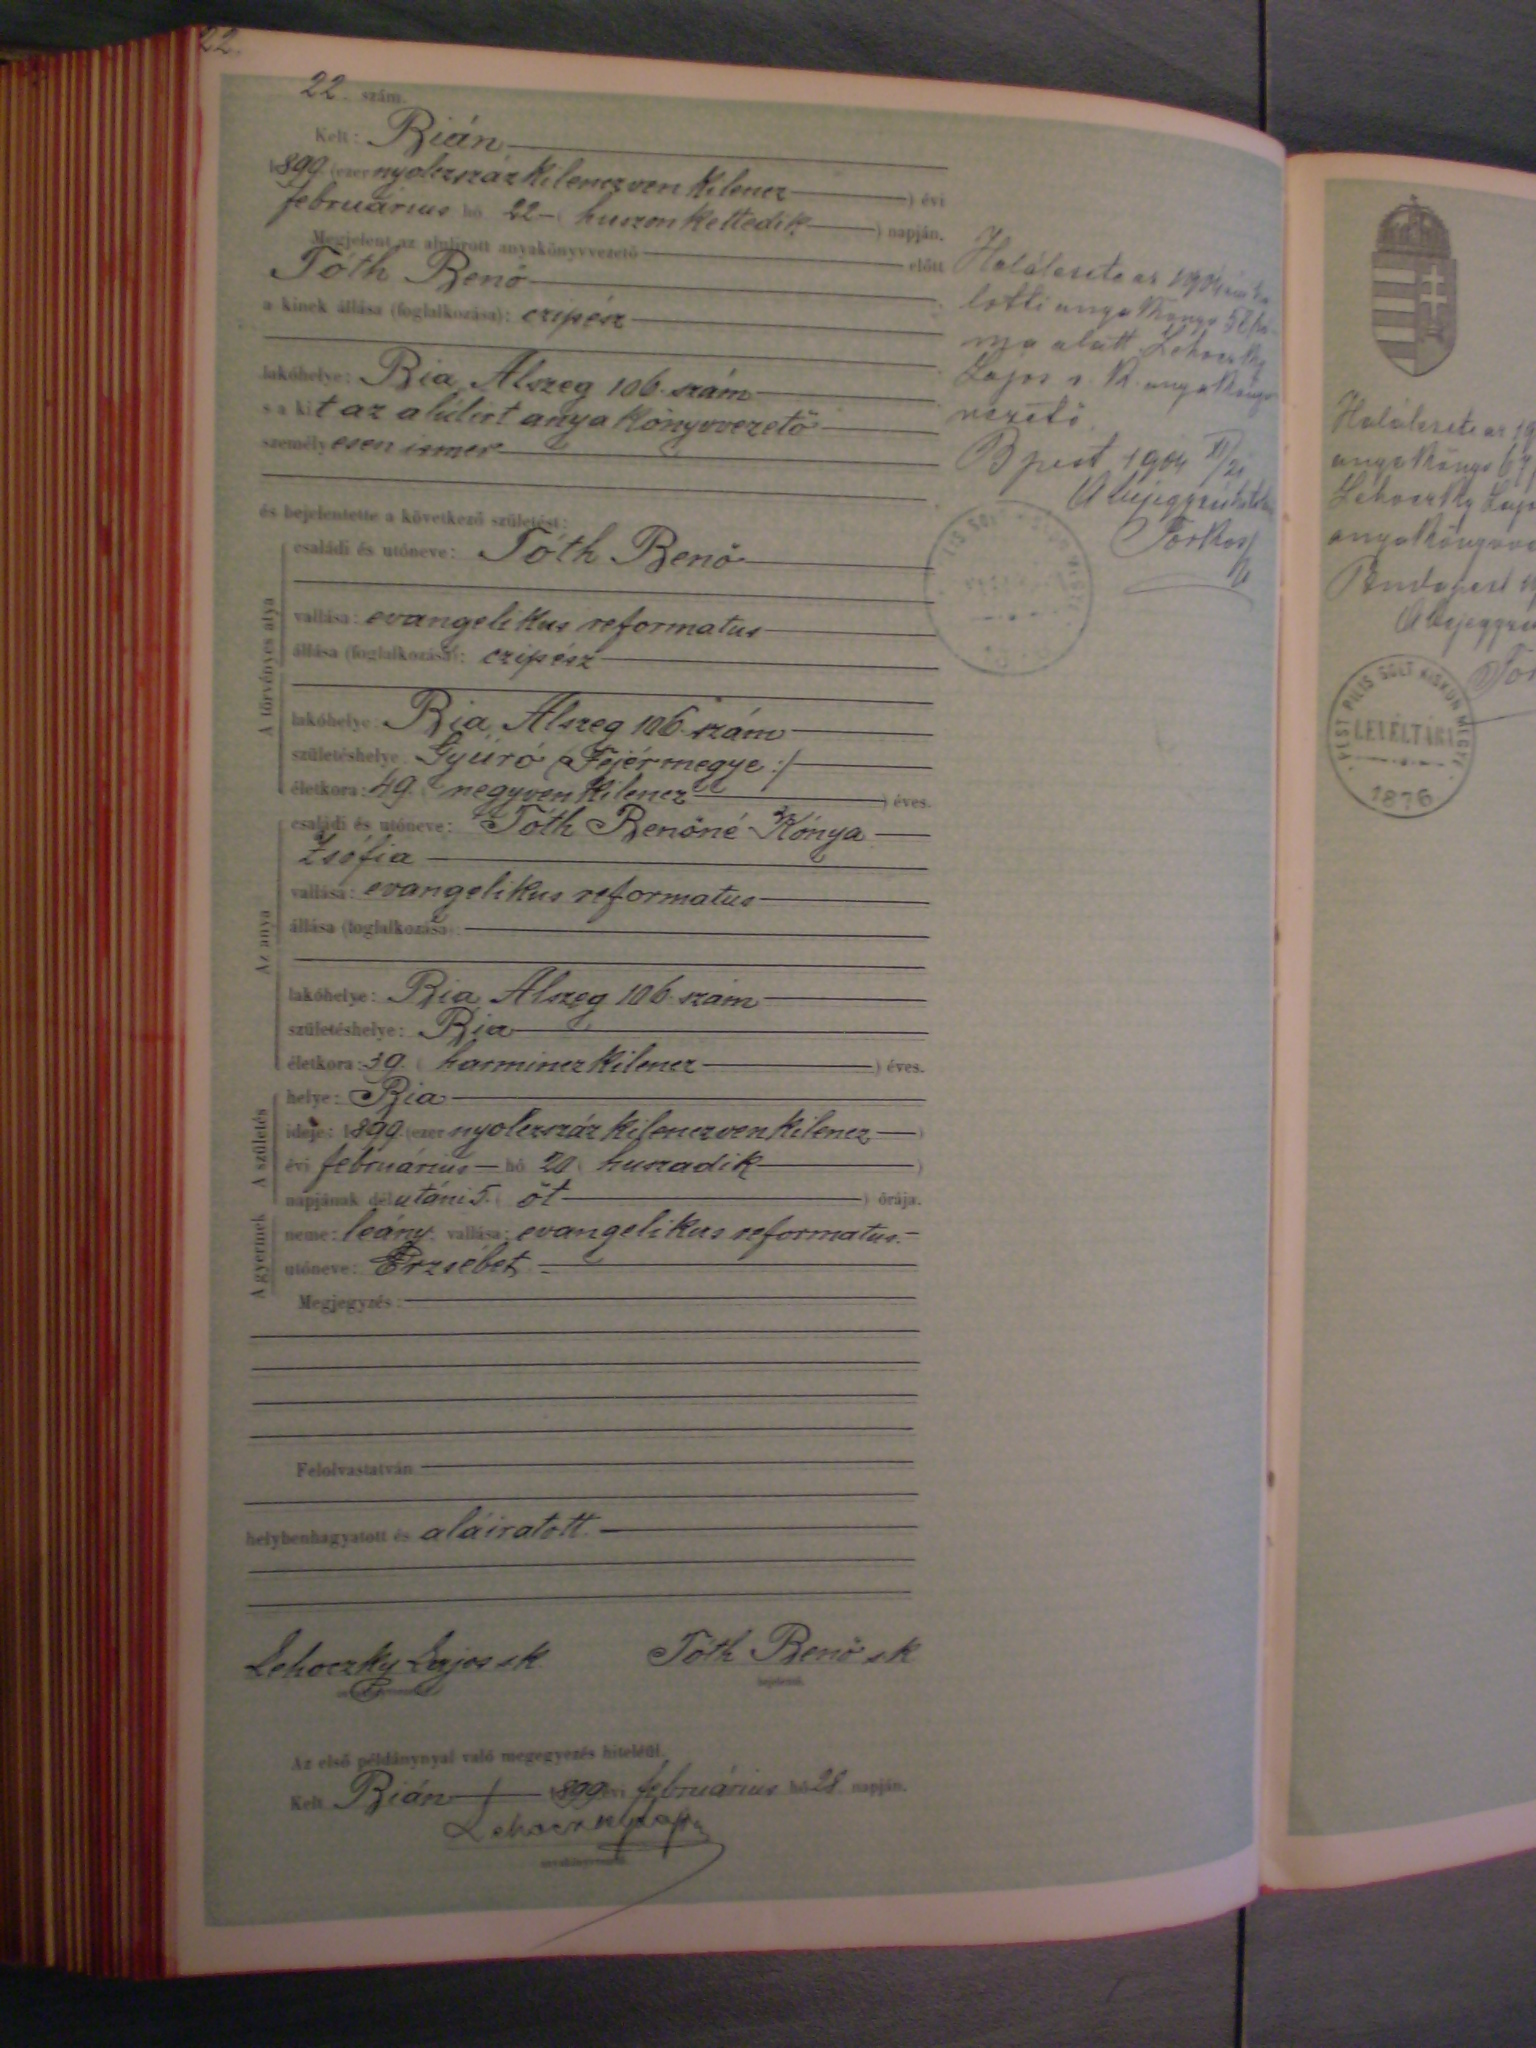 22.
22. szám.
Kelt: Bián
1899. (ezer nyolczszáz kilenczven kilencz ) évi
februárius hó 22 ( huszonkettedik ) napján.
Megjelent az alulírott anyakönyvvezető előtt
Tóth Benő
a kinek állása (foglalkozása): czipész
lakóhelye: Bia Alszeg 106. szám
s a kit az alúlírt anyakönyvvezető
személyesen ismer
és bejelentette a következő születést:
A törvényes atya
családi és utóneve: Tóth Benő
vallása: evangelikus reformatus
állása (foglalkozása): czipész
lakóhelye: Bia, Alszeg 106. szám
születéshelye: Gyúró (Fejérmegye :/
életkora: 49. ( negyvenkilencz ) éves.
Az anya
családi és utóneve: Tóth Benőné Kónya
Zsófia
vallása: evangelikus reformatus
állása (foglalkozása):
lakóhelye: Bia, Alszeg 106. szám
születéshelye: Bia
életkora: 39. ( harminczkilencz ) éves.
A születés
helye: Bia
ideje: 1899. (ezer nyolczszáz kilenczvenkilencz )
évi februárius hó 20 ( huszadik )
napjának délutáni 5. ( öt ) órája.
A gyermek
neme: leány, vallása: evangelikus reformatus.
utóneve: Erzsébet.
Megjegyzés:
Felolvastatván
helybenhagyatott és aláiratott.
Lehoczky Lajos sk Tóth Benő sk
anyakönyvvezető bejelentő.
Az első példánynyal való megegyezés hiteléül.
Kelt Bián 1899 évi februárius hó 28. napján.
Lehoczky Lajos
anyakönyvvezető.
Halálesete az 1904
lotti anyakönyv
alatt Lehoczky
Lajos s. k. anyakönyv
vezető.
Bpest 1904 XI/21
Torkos
Halálesete az 19
anyakönyv 67
Lehoczky Lajo
anyakönyvve
Budapest 19
A bejegyzé
Tor
PEST PILIS SOLT KISKUN MEGYE
LEVÉLTÁRA
1876